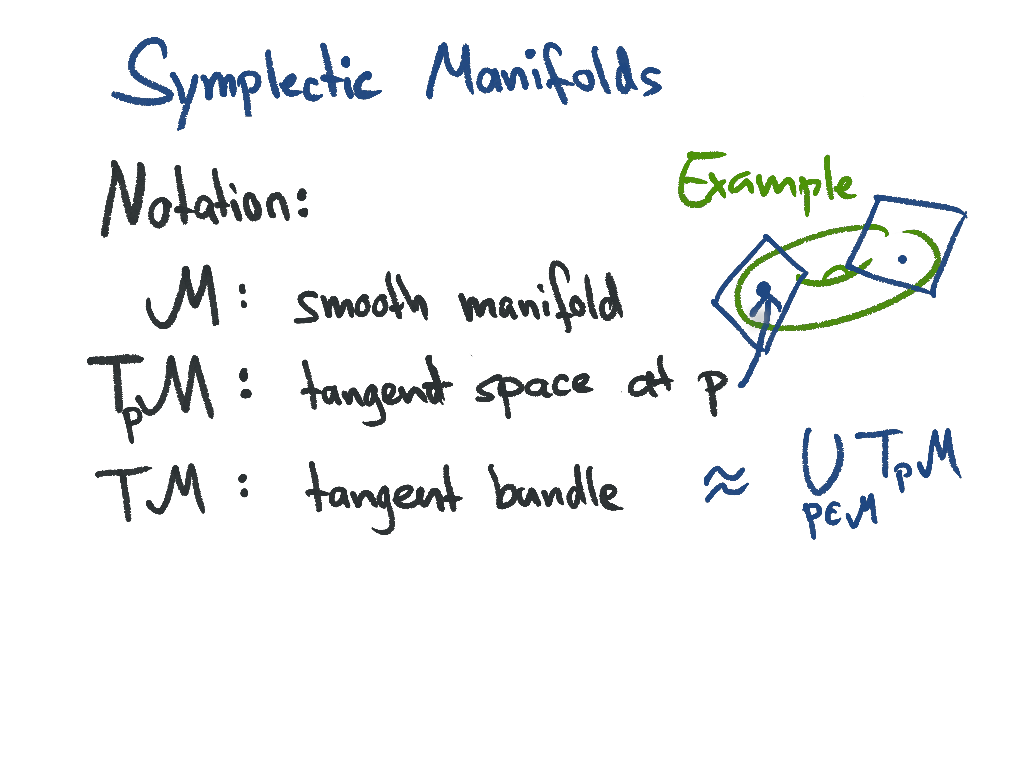 Symplectic Manifolds
Notation:
Example
M: smooth manifold
TₚM: tangent space at p
TM: tangent bundle ≈ ⋃ TₚM
p∈M